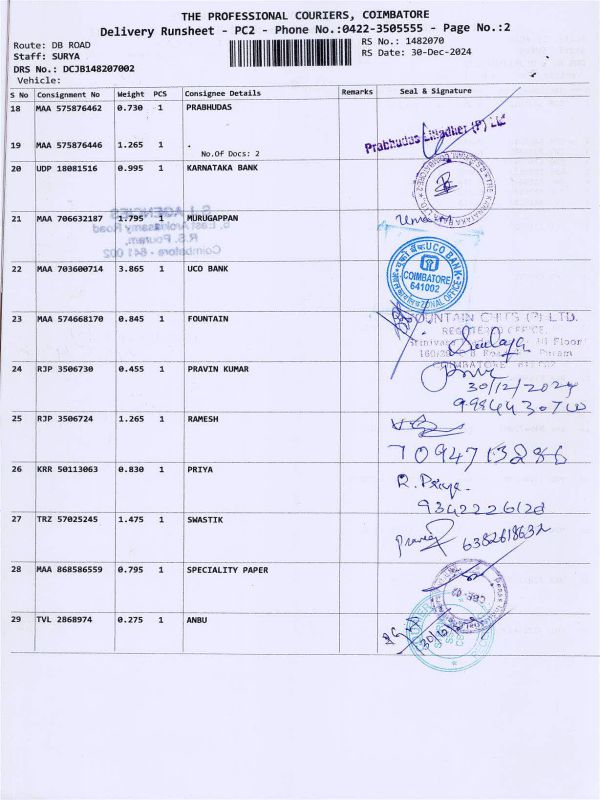 THE PROFESSIONAL COURIERS, COIMBATORE
Delivery Runsheet - PC2 - Phone No.:0422-3505555 - Page No.:2
Route: DB ROAD
RS No.: 1482070
Staff: SURYA
RS Date: 30-Dec-2024
DRS No.: DCJB148207002
Vehicle:
S No Consignment No Weight PCS Consignee Details Remarks Seal & Signature
18 MAA 575876462 0.730 1 PRABHUDAS
Prabhudas Liladher (P) Ltd
19 MAA 575876446 1.265 1 .
No.Of Docs: 2
20 UDP 18081516 0.995 1 KARNATAKA BANK
21 MAA 706632187 1.795 1 MURUGAPPAN
S.J. AGENCIES
R.S. Puram,
Coimbatore - 641 002
22 MAA 703600714 3.865 1 UCO BANK
UCO BANK
COIMBATORE
641002
ZONAL OFFICE
23 MAA 574668170 0.845 1 FOUNTAIN
FOUNTAIN CHITS (P) LTD.
REGISTERED OFFICE,
24 RJP 3506730 0.455 1 PRAVIN KUMAR
30/12/2024
25 RJP 3506724 1.265 1 RAMESH
7094713286
26 KRR 50113063 0.830 1 PRIYA
R. Priya.
27 TRZ 57025245 1.475 1 SWASTIK
28 MAA 868586559 0.795 1 SPECIALITY PAPER
29 TVL 2868974 0.275 1 ANBU